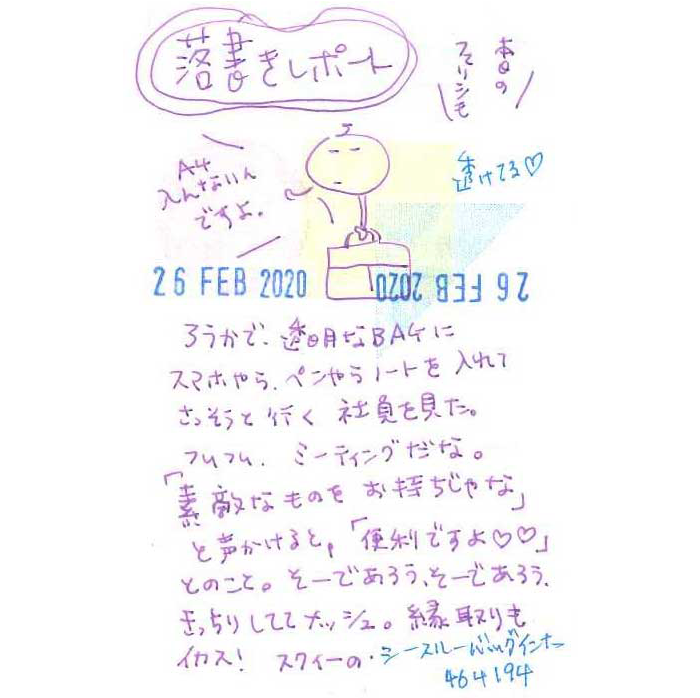 落書きレポート
本日の
フセンも
透けてる♡
A4
入んないん
ですよ.
26 FEB 2020
26 FEB 2020
ろうかで、透明なBAGに
スマホやら、ペンやらノートを入れて
さっそうと行く社員を見た。
フムフム、ミーティングだな。
「素敵なものをお持ちじゃな」
と声かけると,「便利ですよ♡♡」
とのこと。そーであろう、そーであろう、
きっちりしててメッシュ。縁取りも
イカス! スクィーの・シースルー
464194